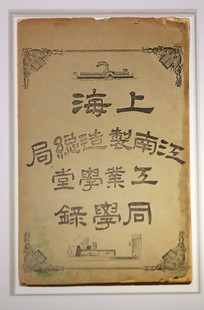 上海
江南製造總局
工業學堂
同學錄